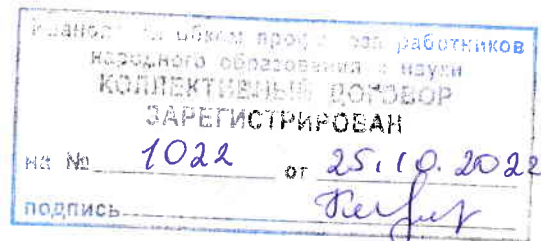 обком проф работников
народного образования и науки
КОЛЛЕКТИВНЫЙ ДОГОВОР
ЗАРЕГИСТРИРОВАН
на № 1022 от 25.10.2022
подпись